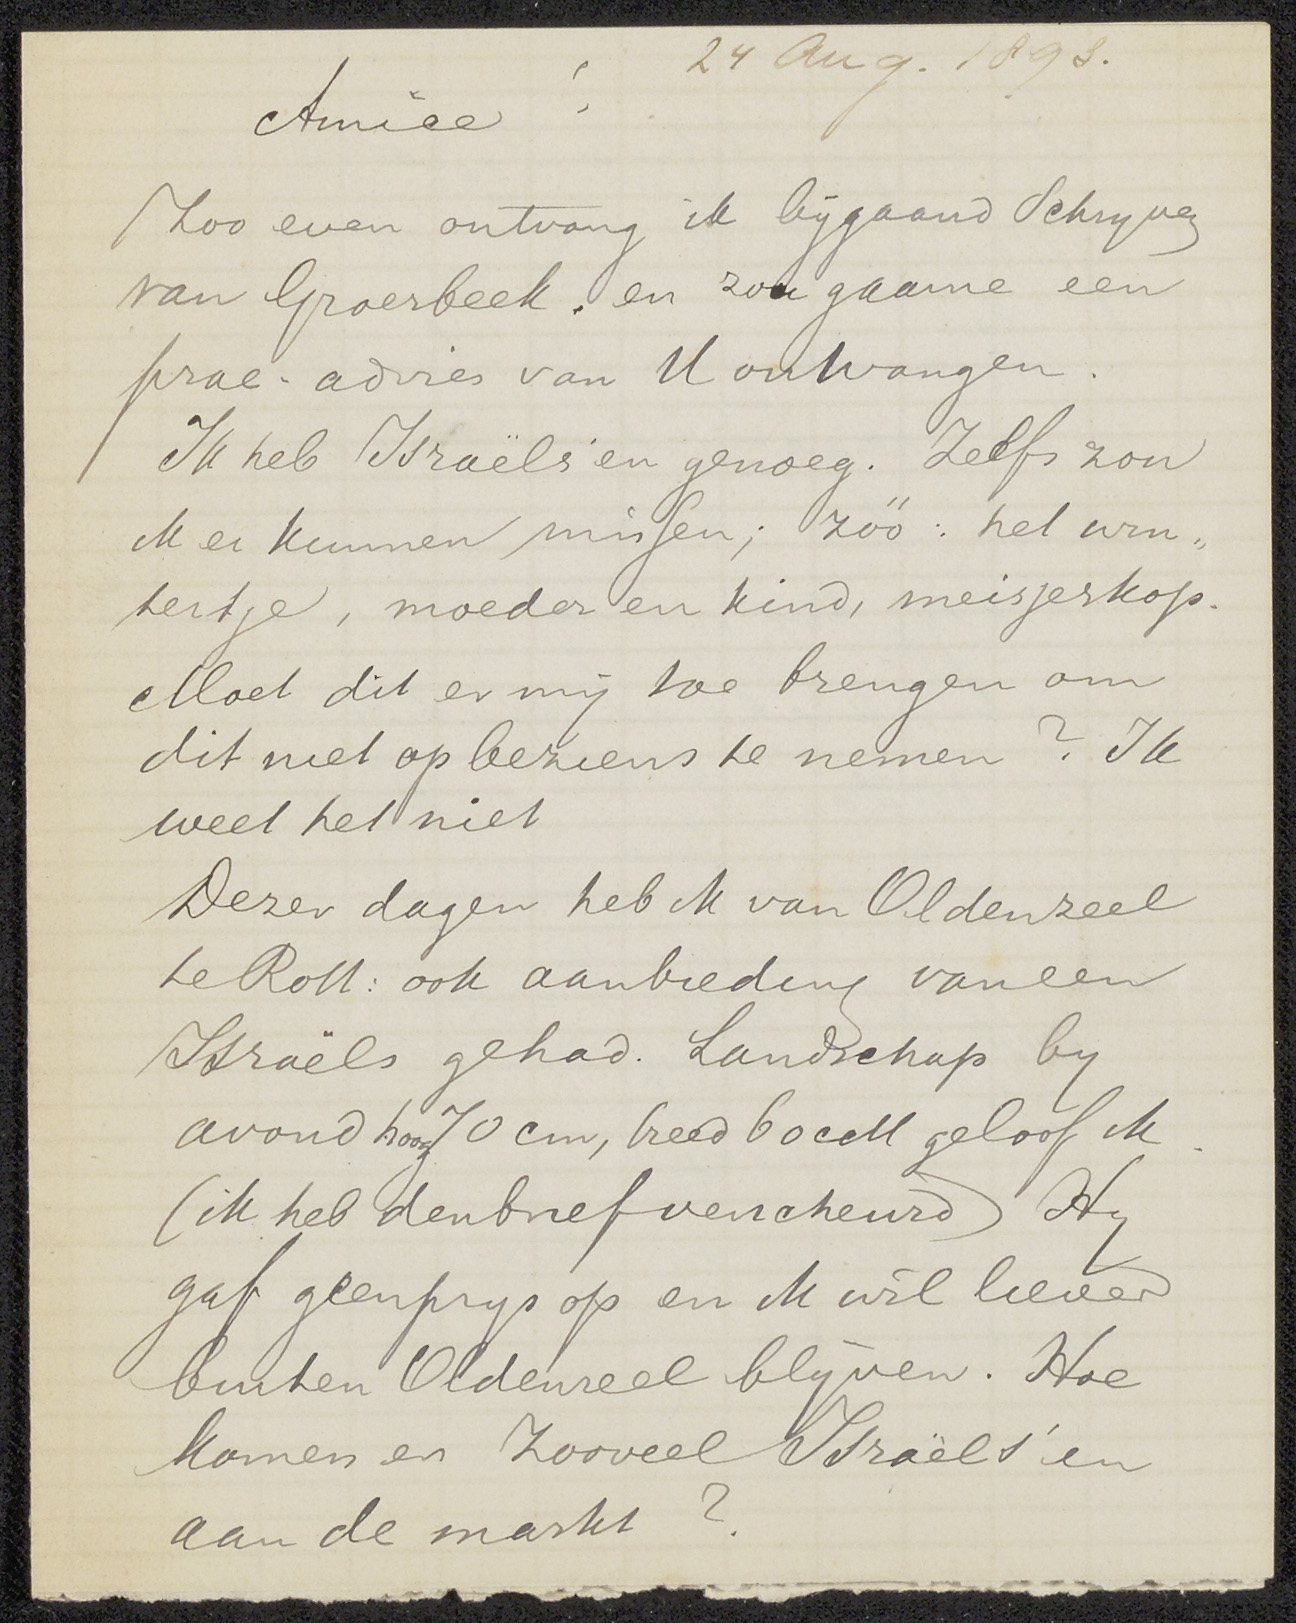 24 Aug. 1893.
Amice !
Zoo even ontvang ik bijgaand Schryven
van Groesbeek. en zou gaarne een
prae-advies van U ontvangen.
Ik heb Israëls'en genoeg. Zelfs zou
ik er kunnen missen; zóó: het win„
tertje, moeder en kind, meisjeskop.
Moet dit er mij toe brengen om
dit niet op beziens te nemen? Ik
weet het niet
Dezer dagen heb ik van Oldenzeel
te Rott: ook aanbieding van een
Israëls gehad. Landschap by
avond hoog 70 cm, breed 60 cM geloof ik.
(ik heb den brief verscheurd) Hy
gaf geen prys op en ik wil liever
buiten Oldenzeel blijven. Hoe
komen er zooveel Israëls'en
aan de markt ?